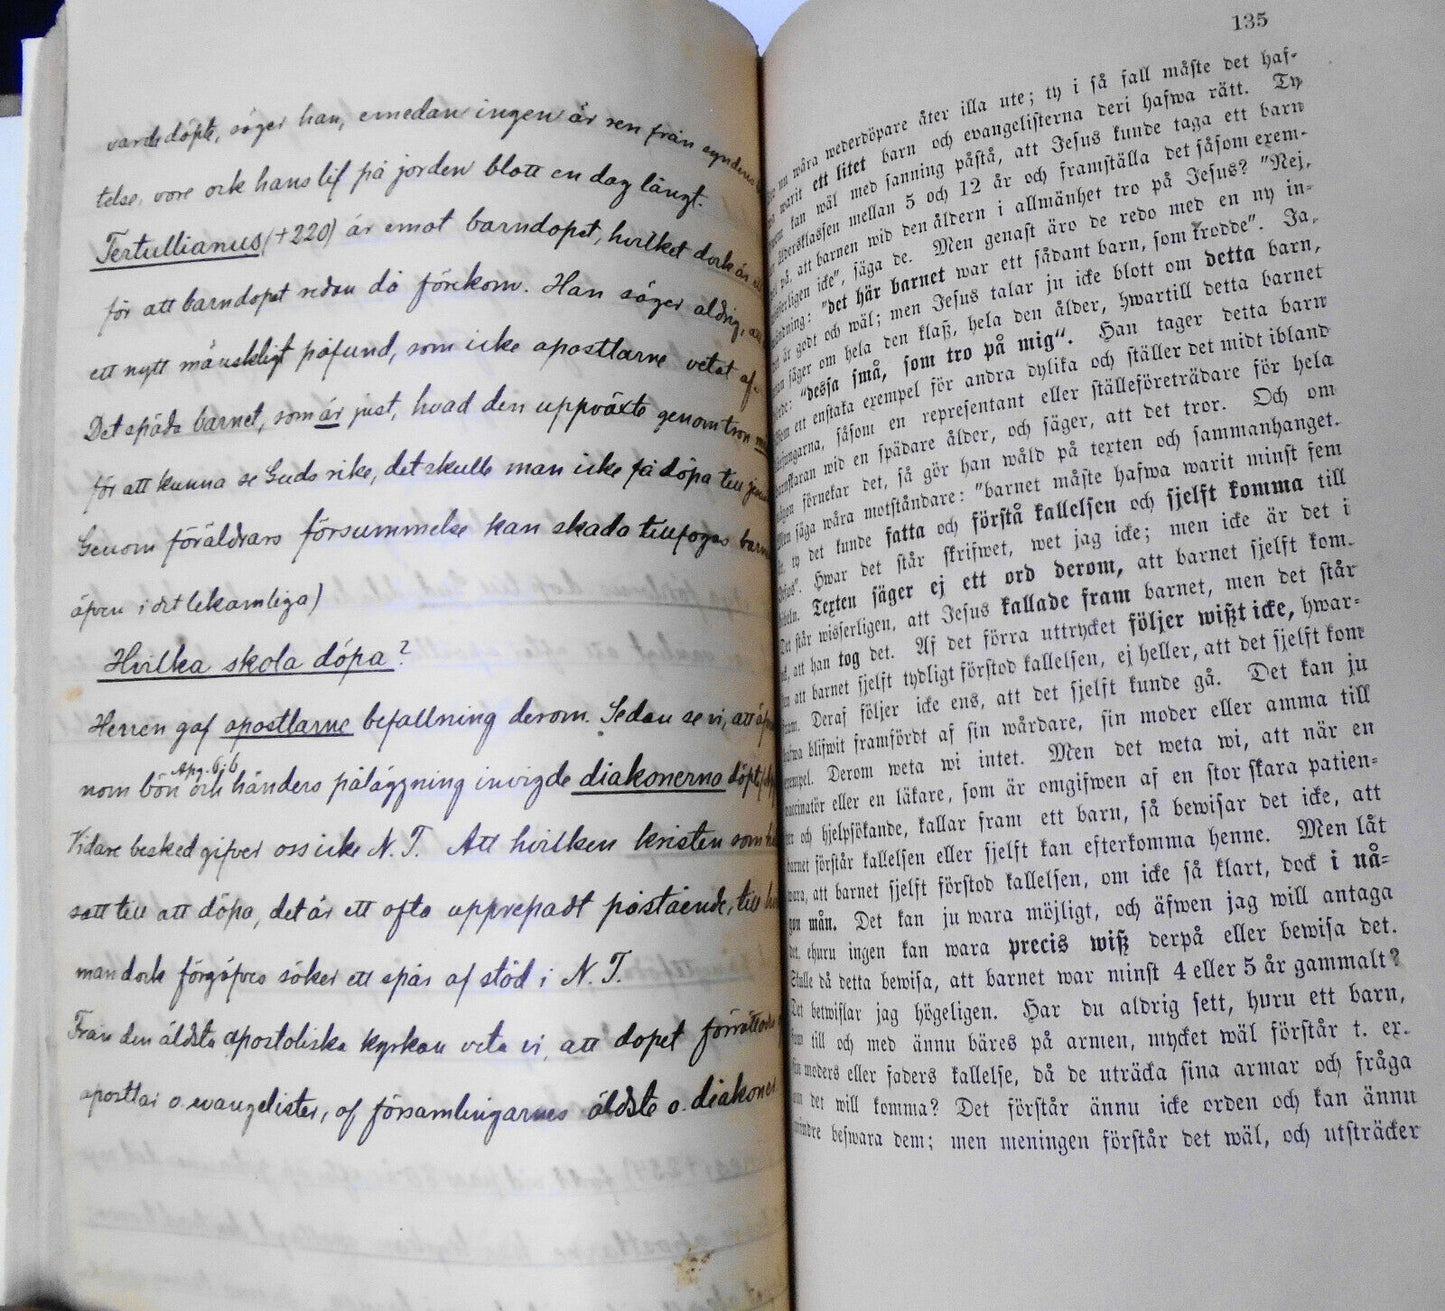 varde döpte, säger han, emedan ingen är ren från
telse, vore ock hans lif på jorden blott en dag långt.
Tertullianus (+220) är emot barndopet, hvilket dock är
för att barndopet redan då förekom. Han säger aldrig,
ett nytt mänskligt påfund, som icke apostlarne vetat af.
Det späda barnet, som är just, hvad den uppväxte genom tron
för att kunna se Guds rike, det skulle man icke få döpa till
Genom föräldrars försummelse kan skada tillfogas
äfven i det lekamliga)
Hvilka skola döpa?
Herren gaf apostlarne befallning derom. Sedan se vi, att
Apg. 6; 6
nom bön och händers påläggning invigde diakonerna
Vidare besked gifver oss icke N. T. Att hvilken kristen som
satt till att döpa, det är ett ofta upprepadt påstående, till
man dock förgäfves söker ett spår af stöd i N. T.
Från den äldsta apostoliska kyrkan veta vi, att dopet
apostlar o. evangelister, af församlingarnes äldste o. diakoner
135
nu wåra wederdöpare åter illa ute; ty i så fall måste det haf-
warit ett litet barn och evangelisterna deri hafwa rätt. Ty
kan wäl med sanning påstå, att Jesus kunde taga ett barn
åldersklassen mellan 5 och 12 år och framställa det såsom exem-
på, att barnen wid den åldern i allmänhet tro på Jesus? "Nej,
wisserligen icke", säga de. Men genast äro de redo med en ny in-
wändning: "det här barnet war ett sådant barn, som trodde". Ja,
det är godt och wäl; men Jesus talar ju icke blott om detta barn,
han säger om hela den klaß, hela den ålder, hwartill detta barnet
hörde: "dessa små, som tro på mig". Han tager detta barn
som ett enstaka exempel för andra dylika och ställer det midt ibland
lärjungarna, såsom en representant eller ställeföreträdare för hela
barnskaran wid en spädare ålder, och säger, att det tror. Och om
någon förnekar det, så gör han wåld på texten och sammanhanget.
Men säga wåra motståndare: "barnet måste hafwa warit minst fem
år, ty det kunde fatta och förstå kallelsen och sjelft komma till
Jesus". Hwar det står skrifwet, wet jag icke; men icke är det i
bibeln. Texten säger ej ett ord derom, att barnet sjelft kom.
Det står wisserligen, att Jesus kallade fram barnet, men det står
ock, att han tog det. Af det förra uttrycket följer wißt icke, hwar-
ken att barnet sjelft tydligt förstod kallelsen, ej heller, att det sjelft kom
fram. Deraf följer icke ens, att det sjelft kunde gå. Det kan ju
hafwa blifwit framfördt af sin wårdare, sin moder eller amma till
exempel. Derom weta wi intet. Men det weta wi, att när en
vaccinatör eller en läkare, som är omgifwen af en stor skara patien-
ter och hjelpsökande, kallar fram ett barn, så bewisar det icke, att
barnet förstår kallelsen eller sjelft kan efterkomma henne. Men låt
wara, att barnet sjelft förstod kallelsen, om icke så klart, dock i nå-
gon mån. Det kan ju wara möjligt, och äfwen jag will antaga
det, ehuru ingen kan wara precis wiß derpå eller bewisa det.
Skulle då detta bewisa, att barnet war minst 4 eller 5 år gammalt?
Det betwiflar jag högeligen. Har du aldrig sett, huru ett barn,
som till och med ännu bäres på armen, mycket wäl förstår t. ex.
sin moders eller faders kallelse, då de uträcka sina armar och fråga
om det will komma? Det förstår ännu icke orden och kan ännu
mindre beswara dem; men meningen förstår det wäl, och utsträcker